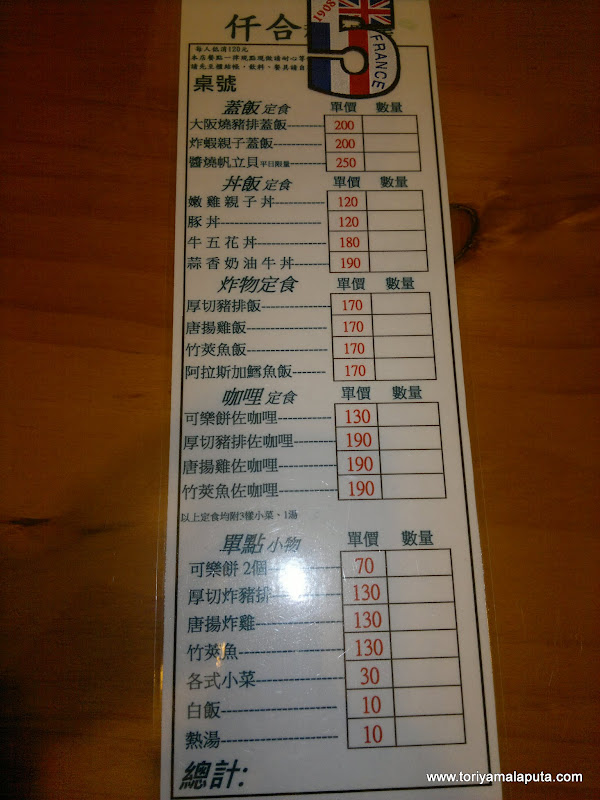 仟合
1908
FRANCE
每人低消120元
本店餐點一律現點現做請耐心等
請先至櫃結帳、飲料、餐具請自
桌號
蓋飯定食 單價 數量
大阪燒豬排蓋飯--------- 200
炸蝦親子蓋飯--------- 200
醬燒帆立貝平日限量--------- 250
丼飯定食 單價 數量
嫩雞親子丼--------- 120
豚丼--------- 120
牛五花丼--------- 180
蒜香奶油牛丼--------- 190
炸物定食 單價 數量
厚切豬排飯--------- 170
唐揚雞飯--------- 170
竹莢魚飯--------- 170
阿拉斯加鱈魚飯--------- 170
咖哩定食 單價 數量
可樂餅佐咖哩--------- 130
厚切豬排佐咖哩--------- 190
唐揚雞佐咖哩--------- 190
竹莢魚佐咖哩--------- 190
以上定食均附3樣小菜、1湯
單點小物 單價 數量
可樂餅 2個--------- 70
厚切炸豬排--------- 130
唐揚炸雞--------- 130
竹莢魚--------- 130
各式小菜--------- 30
白飯--------- 10
熱湯--------- 10
總計:
www.toriyamalaputa.com